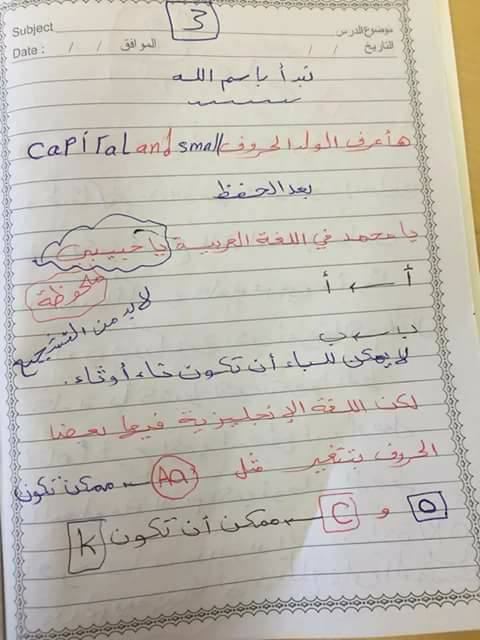 3
Subject موضوع الدرس
Date : / / الموافق / / التاريخ
نبدأ باسم الله
هأعرف الولد الحروف capital and small
بعد الحفظ
يا محمد في اللغة العربية يا حبيبي
ملحوظة
لابد من التشجيع
أ ← أ
ب ← ب
لا يمكن للباء أن تكون تاء أو ثاء.
لكن اللغة الإنجليزية فيها بعضا
الحروف بتتغير مثل Aa ممكن تكون
O و C ممكن أن تكون K